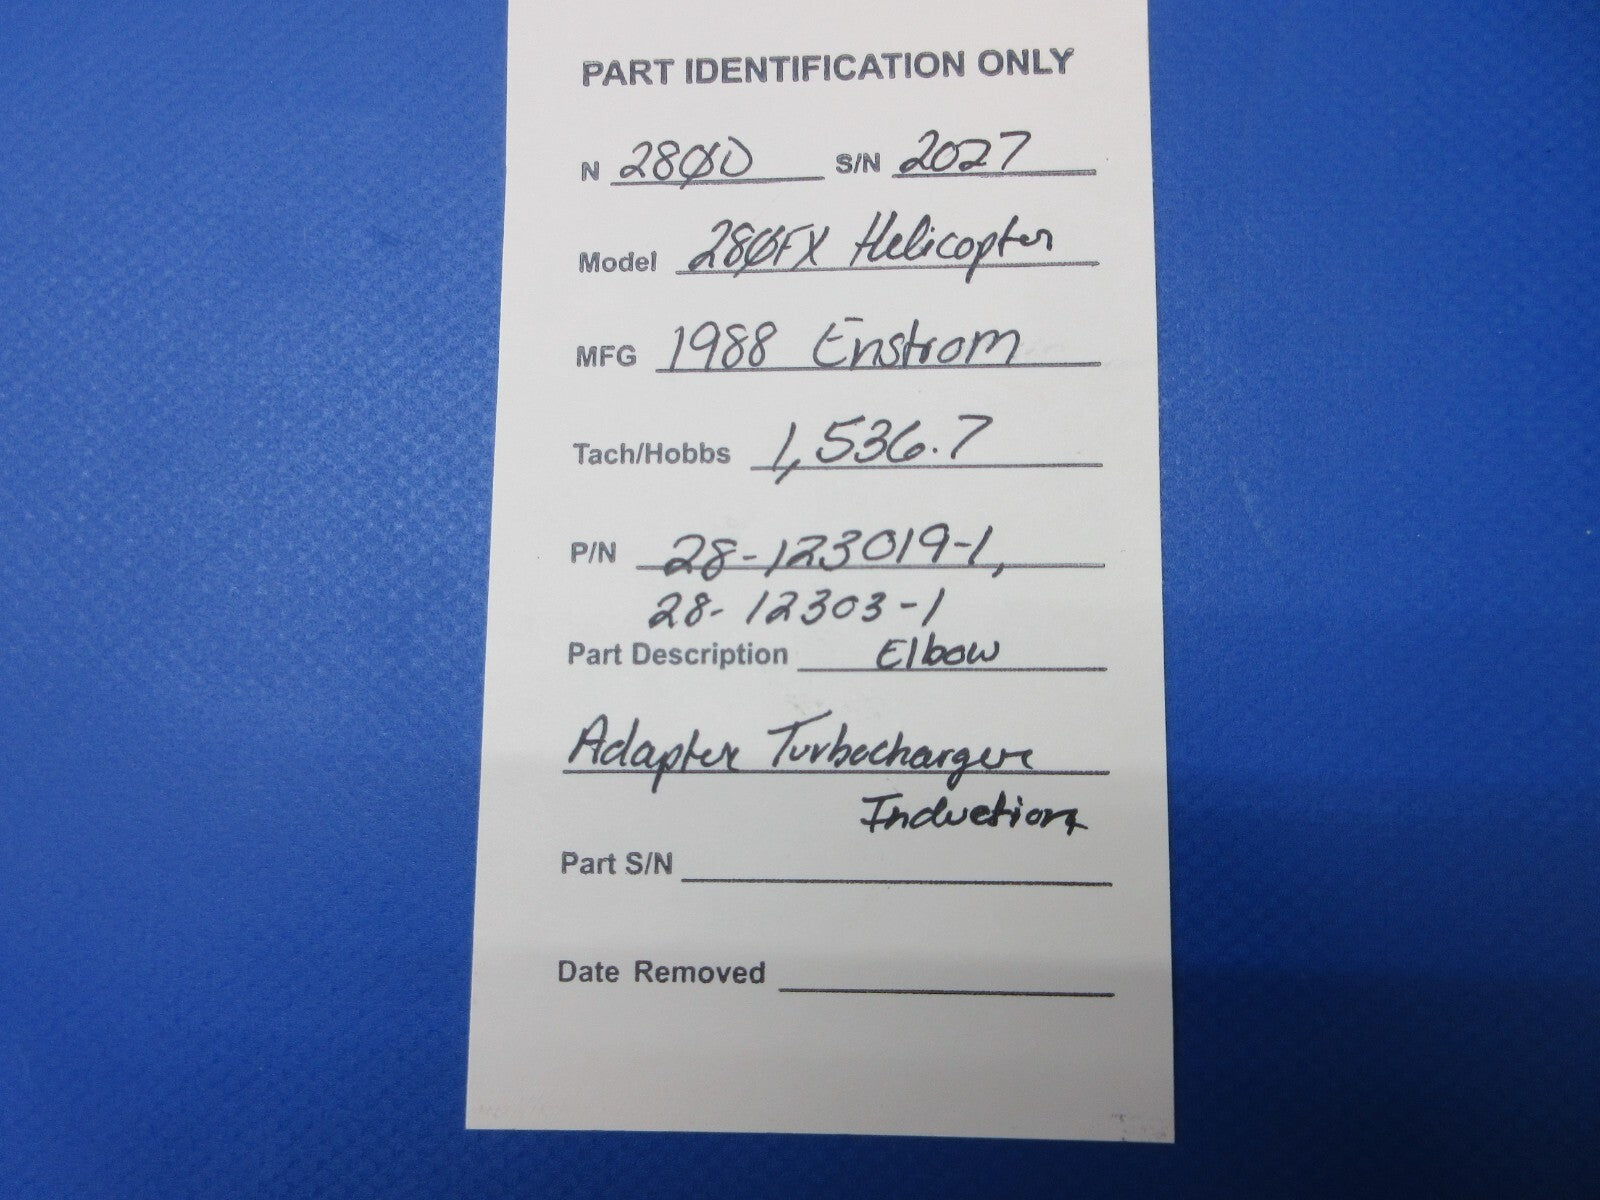 PART IDENTIFICATION ONLY
N 28Ø0 S/N 2027
Model 28ØFX Helicopter
MFG 1988 Enstrom
Tach/Hobbs 1,536.7
P/N 28-123019-1,
28-12303-1
Part Description Elbow
Adapter Turbocharger
Induction
Part S/N
Date Removed